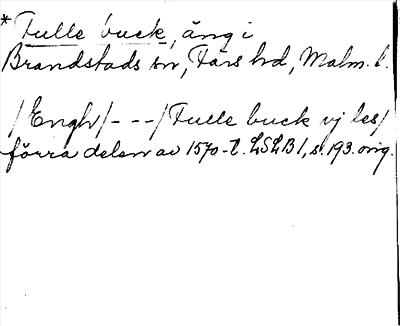 *Fulle buck, äng i
Brandstads sn, Färs hd, Malm. l.
/Engh/---/Fulle buck vj les/
förra delen av 1570-t. LSLB I, s. 193. orig.